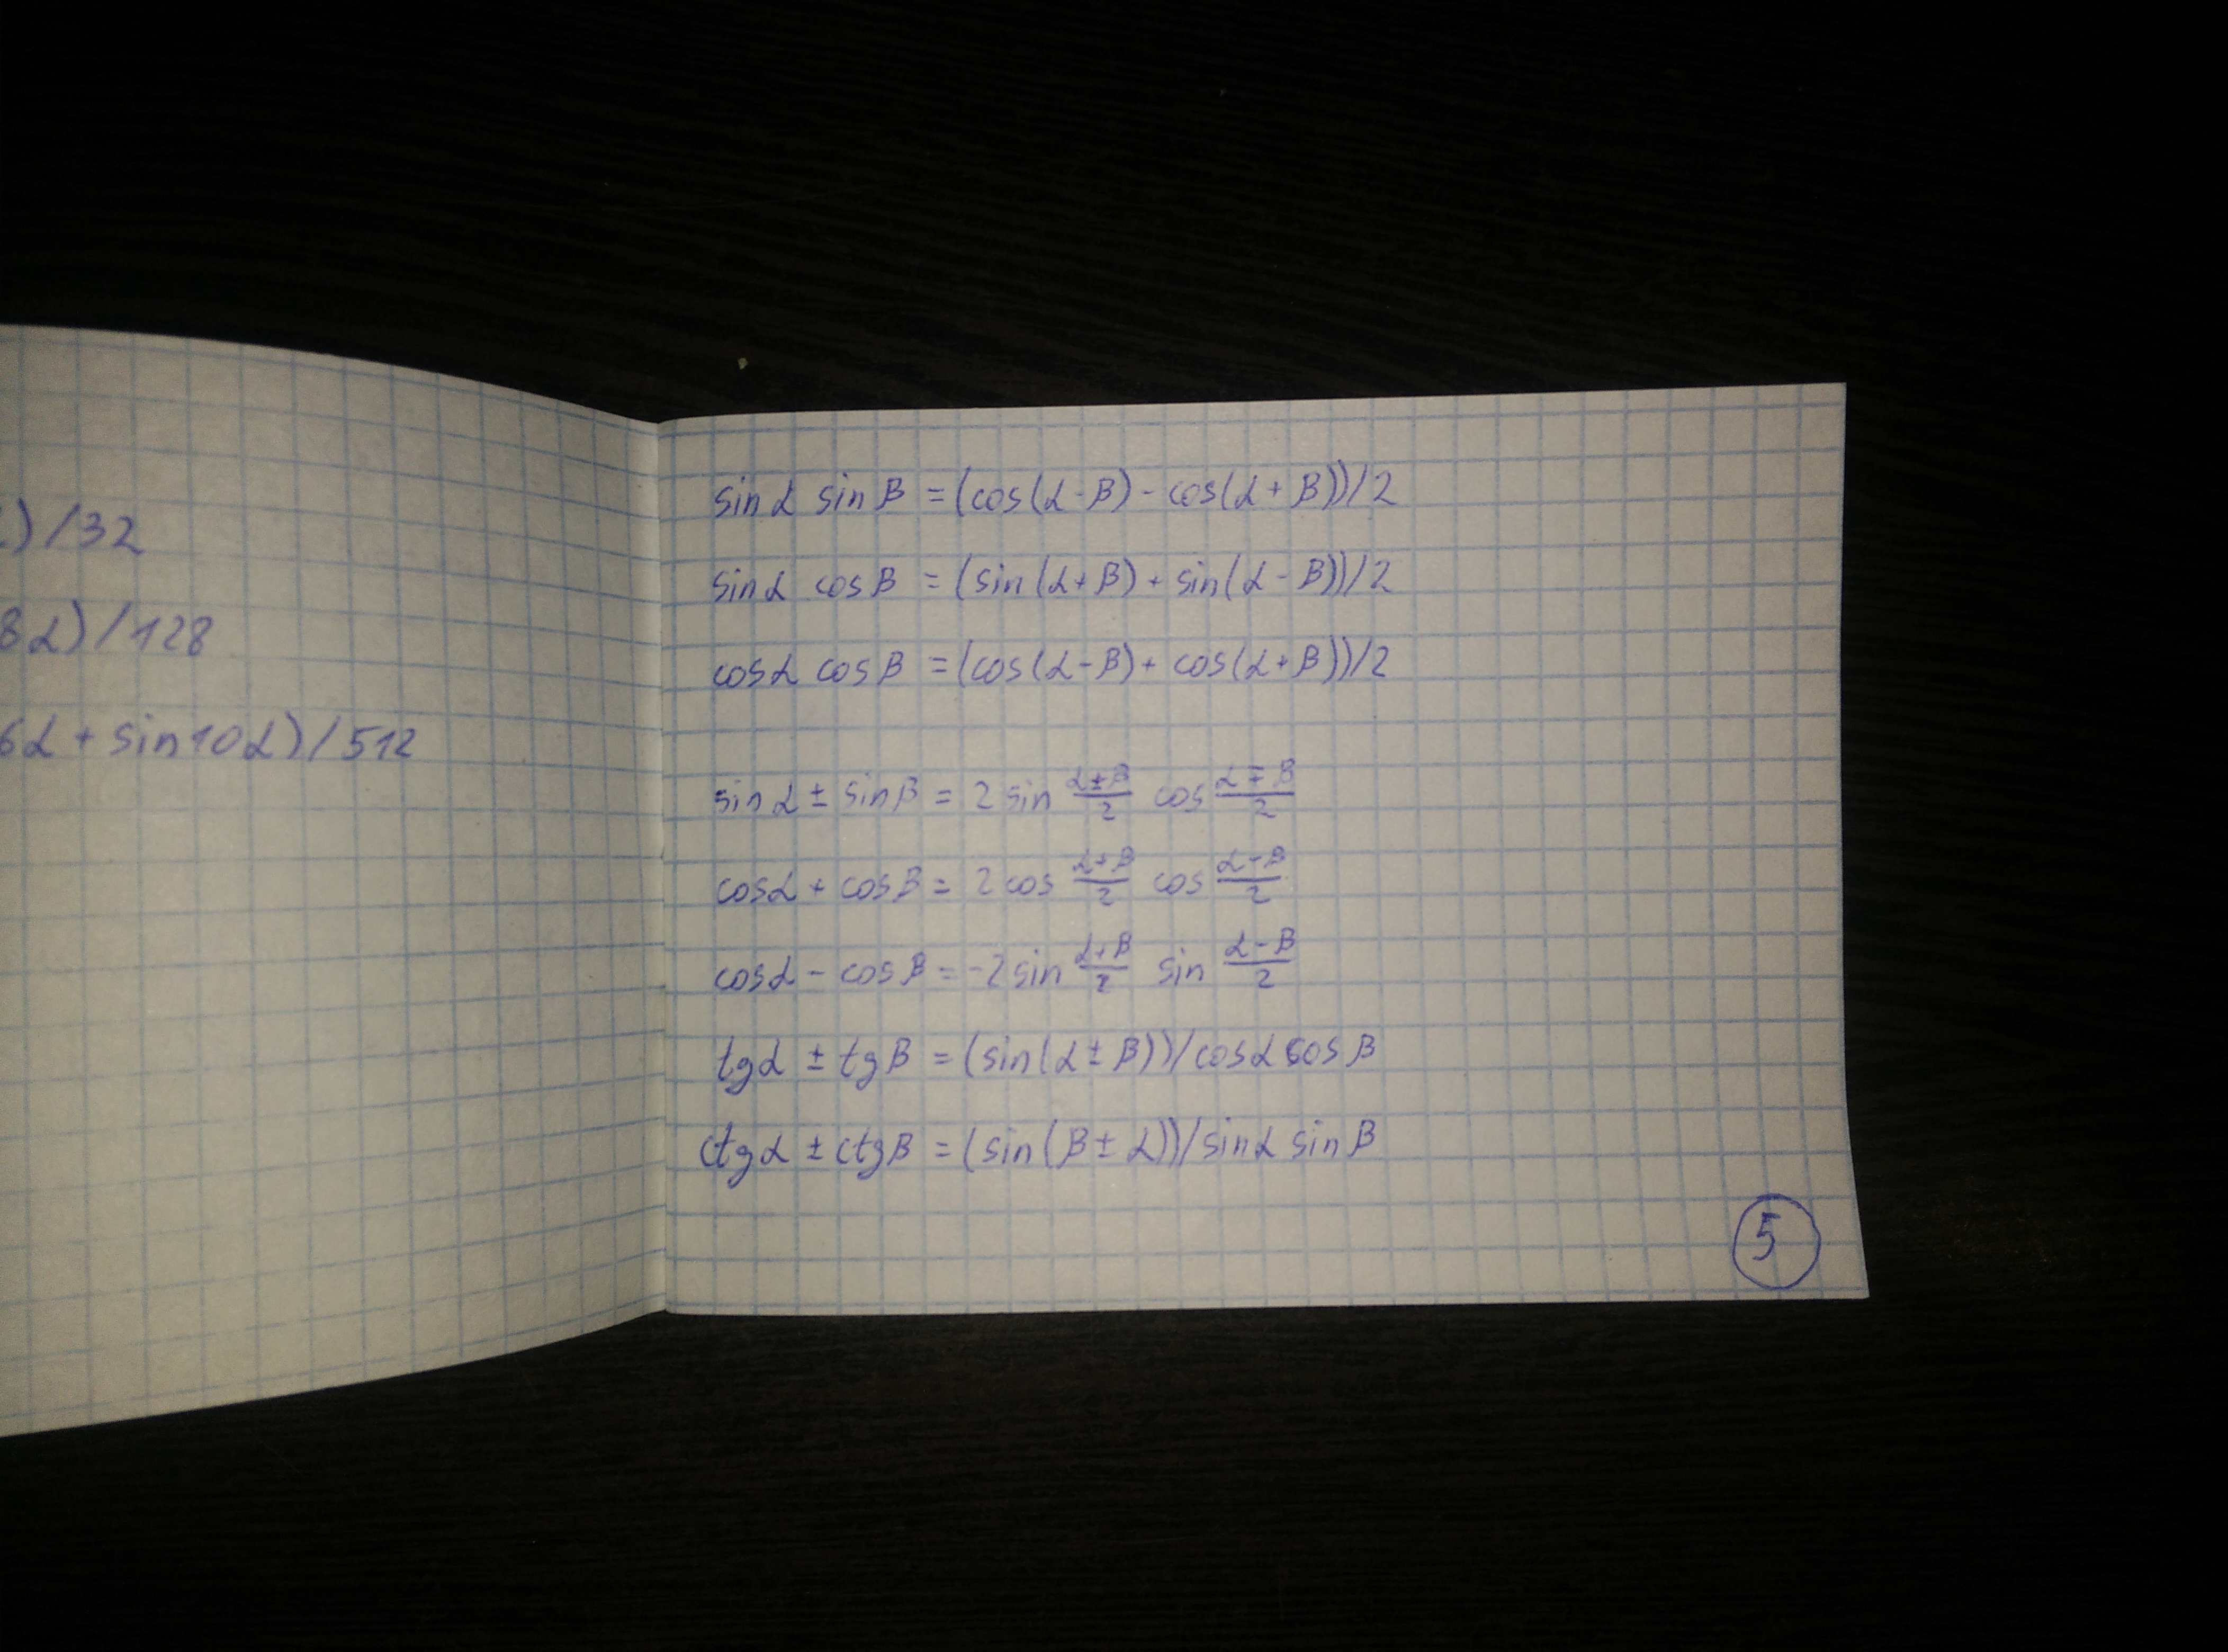 )/32
8α)/128
6α + sin10α)/512
sinα sinβ = (cos(α-β) - cos(α+β))/2
sinα cosβ = (sin(α+β) + sin(α-β))/2
cosα cosβ = (cos(α-β) + cos(α+β))/2
sinα ± sinβ = 2 sin (α±β)/2 cos (α∓β)/2
cosα + cosβ = 2 cos (α+β)/2 cos (α-β)/2
cosα - cosβ = -2 sin (α+β)/2 sin (α-β)/2
tgα ± tgβ = (sin(α±β))/cosα cosβ
ctgα ± ctgβ = (sin(β±α))/sinα sinβ
5